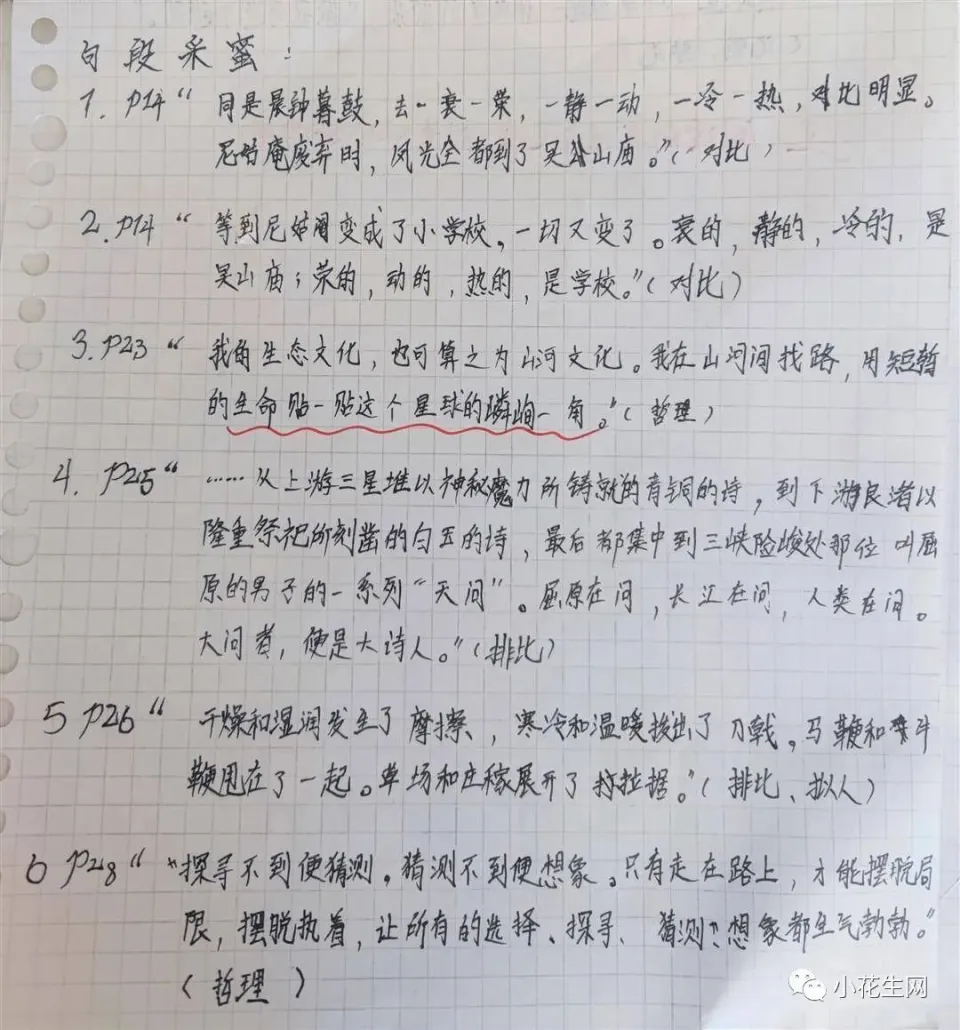 句段采蜜:
1. P14“ 同是晨钟暮鼓,去一衰一荣,一静一动,一冷一热,对比明显。
尼姑庵废弃时,风光全都到了吴山庙。”(对比)
2. P14“ 等到尼姑阁变成了小学校,一切又变了。衰的,静的,冷的,是
吴山庙;荣的,动的,热的,是学校。”(对比)
3. P23“ 我的生态文化,也可算之为山河文化。我在山河间找路,用短暂
的生命贴一贴这个星球的嶙峋一角。”(哲理)
4. P25“ ……从上游三星堆以神秘魔力所铸就的青铜的诗,到下游良渚以
隆重祭祀所刻凿的白玉的诗,最后都集中到三峡险峻处那位叫屈
原的男子的一系列“天问”。屈原在问,长江在问,人类在问。
大问者,便是大诗人。”(排比)
5 P26“ 干燥和湿润发生了摩擦,寒冷和温暖拨出了刀戟,马鞭和牛
鞭甩在了一起。草场和庄稼展开了拉据。”(排比、拟人)
6 P28“ “探寻不到便猜测。猜测不到便想象。只有走在路上,才能摆脱局
限,摆脱执着,让所有的选择、探寻、猜测、想象都生气勃勃。”
(哲理)
小花生网